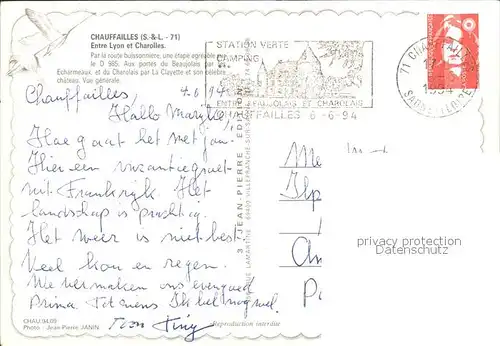 CHAUFFAILLES (S.-&L. - 71)
Entre Lyon et Charolles.
Par la route buissonnière, une étape agréable
le D 985. Aux portes du Beaujolais par
Echarmeaux, et du Charolais par La Clayette et son célèbre
château. Vue générale.
STATION VERTE
CAMPING
ENTRE BEAUJOLAIS ET CHAROLAIS
FFAILLES 6-6-94
71 CHAUFFAILLES
1994
SAONE-ET-LOIRE
Chauffailles, 4.6.94
Hallo
Hoe gaat het met jou.
Hier een vacantiegroet
uit Frankryk. Het
landschap is prachtig.
Het weer is niet best
Veel kou en regen.
We vermaken ons evengoed
Prima. Tot ziens Ik bel nog wel.
Tiny
3 JEAN-PIERRE EDITION
LAMARTINE - 69400 VILLEFRANCHE-SUR
CHAU 94.09
Photo : Jean-Pierre JANIN
Reproduction interdite
privacy protection
Datenschutz